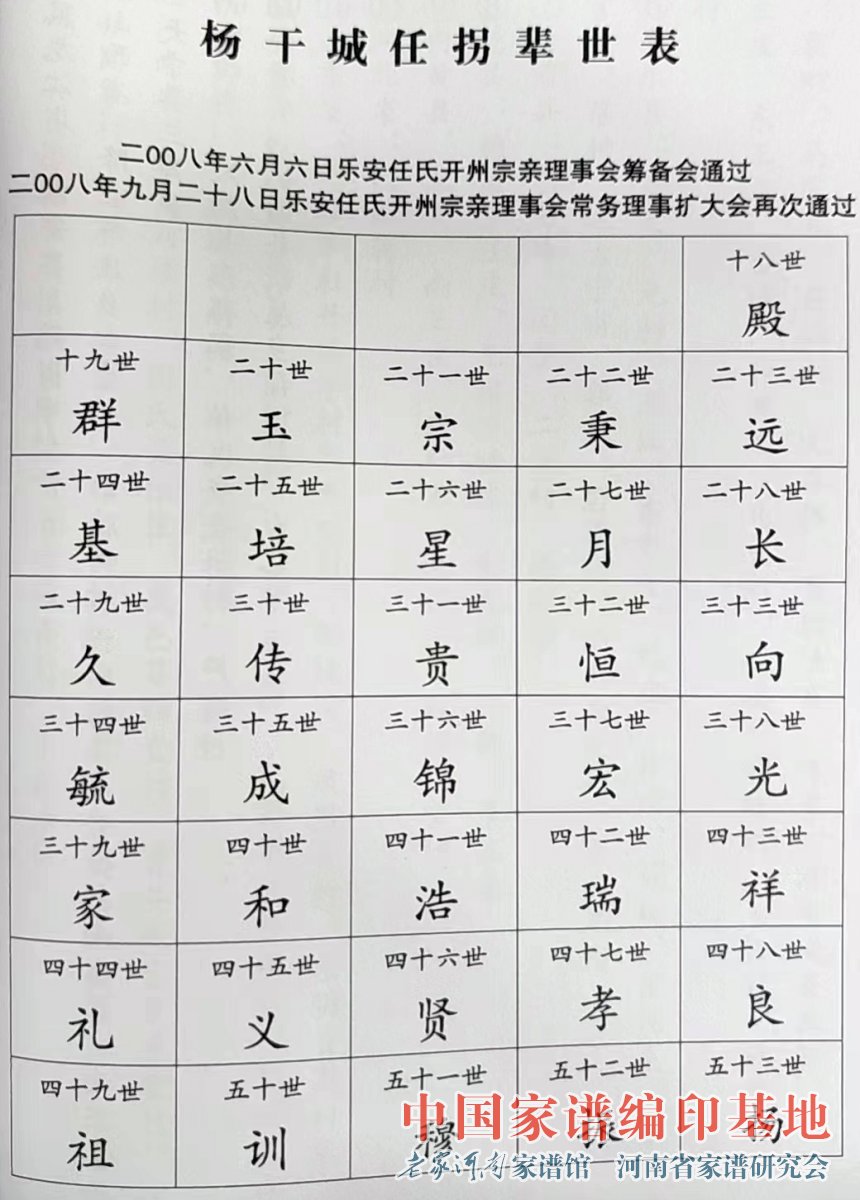 杨干城任拐辈世表
二00八年六月六日乐安任氏开州宗亲理事会筹备会通过
二00八年九月二十八日乐安任氏开州宗亲理事会常务理事扩大会再次通过
十八世
殿
十九世 二十世 二十一世 二十二世 二十三世
群 玉 宗 秉 远
二十四世 二十五世 二十六世 二十七世 二十八世
基 培 星 月 长
二十九世 三十世 三十一世 三十二世 三十三世
久 传 贵 恒 向
三十四世 三十五世 三十六世 三十七世 三十八世
毓 成 锦 宏 光
三十九世 四十世 四十一世 四十二世 四十三世
家 和 浩 瑞 祥
四十四世 四十五世 四十六世 四十七世 四十八世
礼 义 贤 孝 良
四十九世 五十世 五十一世 五十二世 五十三世
祖 训 穆 振
中国家谱编印基地
老家河南家谱馆 河南省家谱研究会